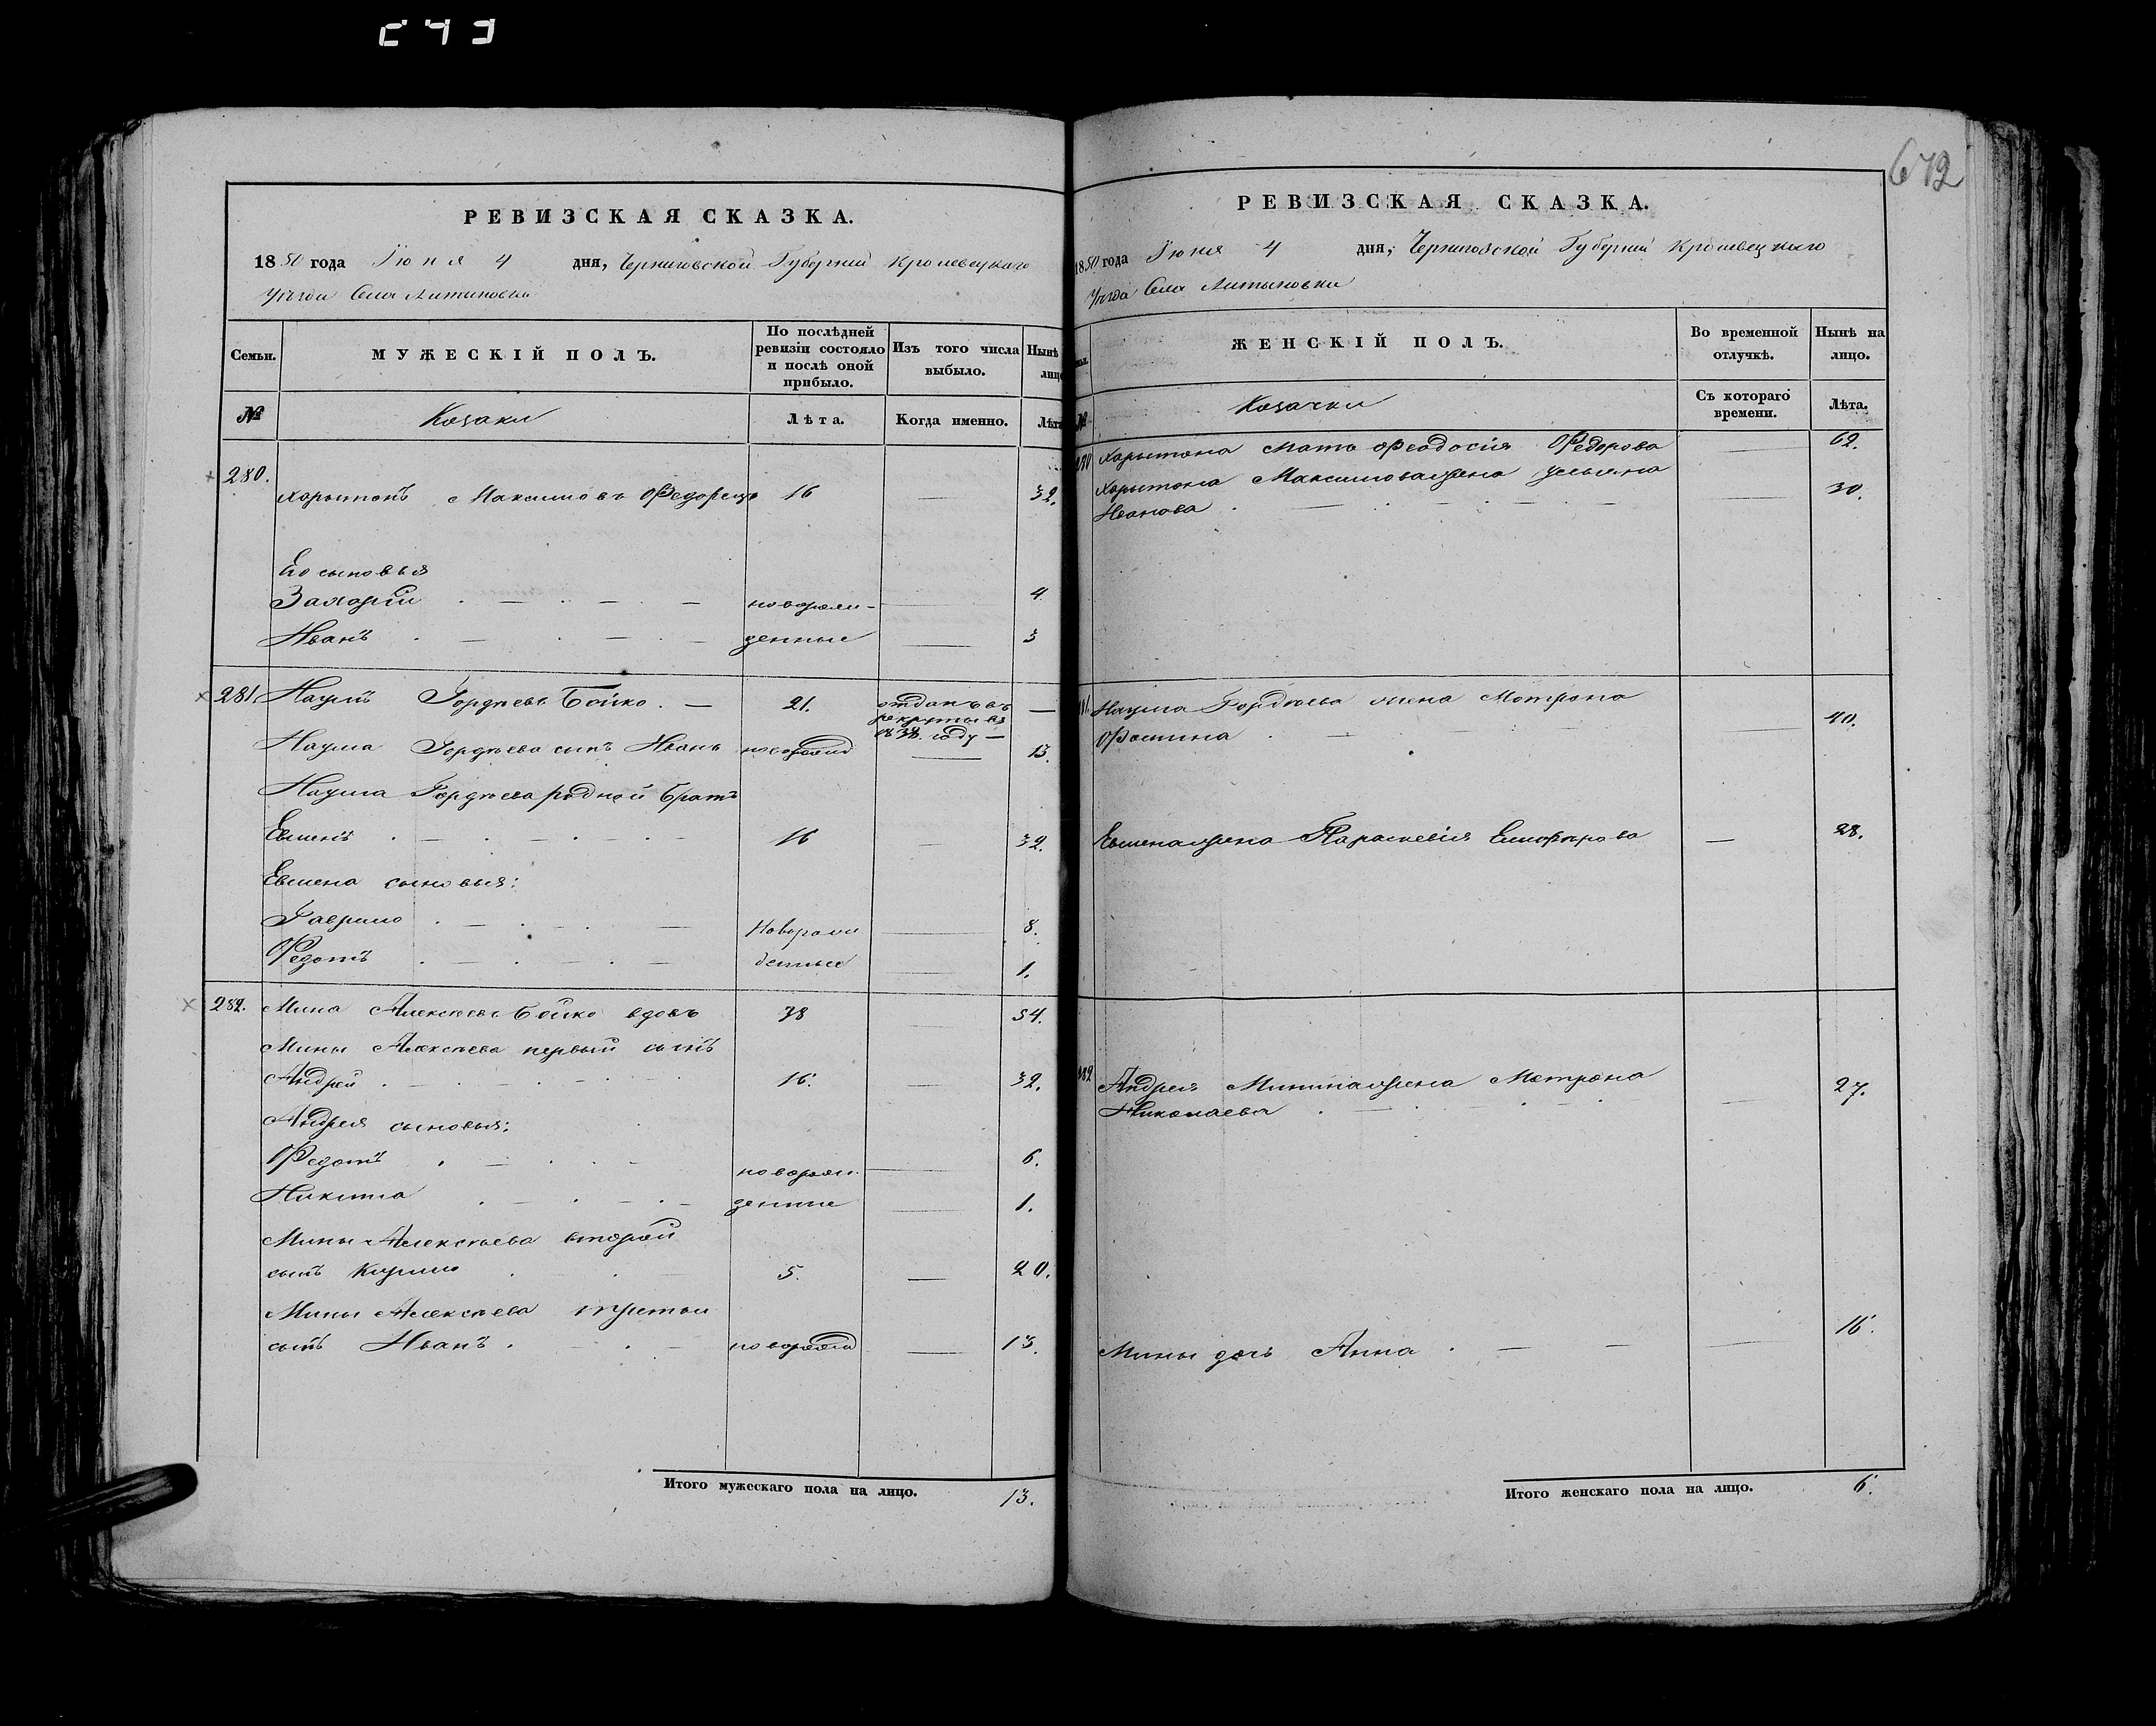 643
РЕВИЗСКАЯ СКАЗКА.
1850 года Июня 4 дня, Черниговской Губерніи Кролевецкаго
Уѣзда Села Литвиновки
Семьи.
МУЖЕСКІЙ ПОЛЪ.
По послѣдней ревизіи состояло и послѣ оной прибыло.
Изъ того числа выбыло.
Нынѣ лицо
№
Козаки
Лѣта.
Когда именно.
Лѣта
280.
Харитонъ Максимовъ Федорецъ 16 — 32.
Его сыновья
Захарій новорож- — 4
Иванъ денные — 3
281. Наумъ Гордѣевъ Бойко. — 21. отданъ въ рекруты въ 1838. году —
Наума Гордѣева сынъ Иванъ новорожд — 13.
Наума Гордѣева родной братъ
Евменъ 16 — 32.
Евмена сыновья:
Гаврило новорож — 8.
Федотъ денные — 1.
282. Мина Алексѣевъ Бойко вдовъ 38 — 54.
Мины Алексѣева первый сынъ
Андрей 16. — 32.
Андрея сыновья:
Федотъ новорож — 6.
Никита денные — 1.
Мины Алексѣева второй
сынъ Кирило 5. — 20.
Мины Алексѣева третьи
сынъ Иванъ новорожд — 13.
Итого мужескаго пола на лицо. 13.
642
РЕВИЗСКАЯ СКАЗКА.
1850 года Июня 4 дня, Черниговской Губерніи Кролевецкаго
Уѣзда Села Литвиновки
ЖЕНСКІЙ ПОЛЪ.
Во временной отлучкѣ.
Нынѣ на лицо.
№
Козачки
Съ котораго времени.
Лѣта.
280 Харитона мать Феодосія Федорова — 62.
Харитона Максимова жена Ульяна
Иванова — 30.
281. Наума Гордѣева жена Мотрона
Фомина — 40.
Евмена жена Параскевія — 28.
282 Андрея Минина жена Мотрона
Николаева — 27.
Мины дочь Анна — 16.
Итого женскаго пола на лицо. 6.